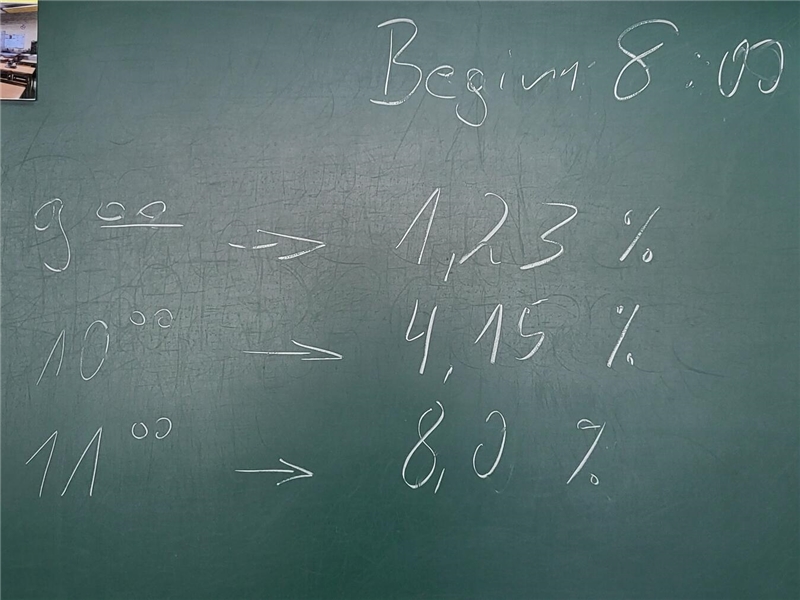 Beginn: 8:00
9 00 → 1,23 %
10 00 → 4,15 %
11 00 → 8,0 %